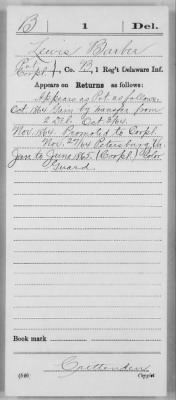 B | 1 | Del.
Lewis Barber
Pvt
Corpl, Co. B, 1 Reg't Delaware Inf.
Appears on Returns as follows:
Appears as Pvt. as follows.
Oct 1864 Gain by transfer from
2 Del. Oct 3/64.
Nov. 1864. Promoted to Corpl.
Nov. 27/64 Petersburg, Va.
Jan to June 1865. (Corpl.) Color
Guard.
Book mark
Crittenden
(546) Copyist